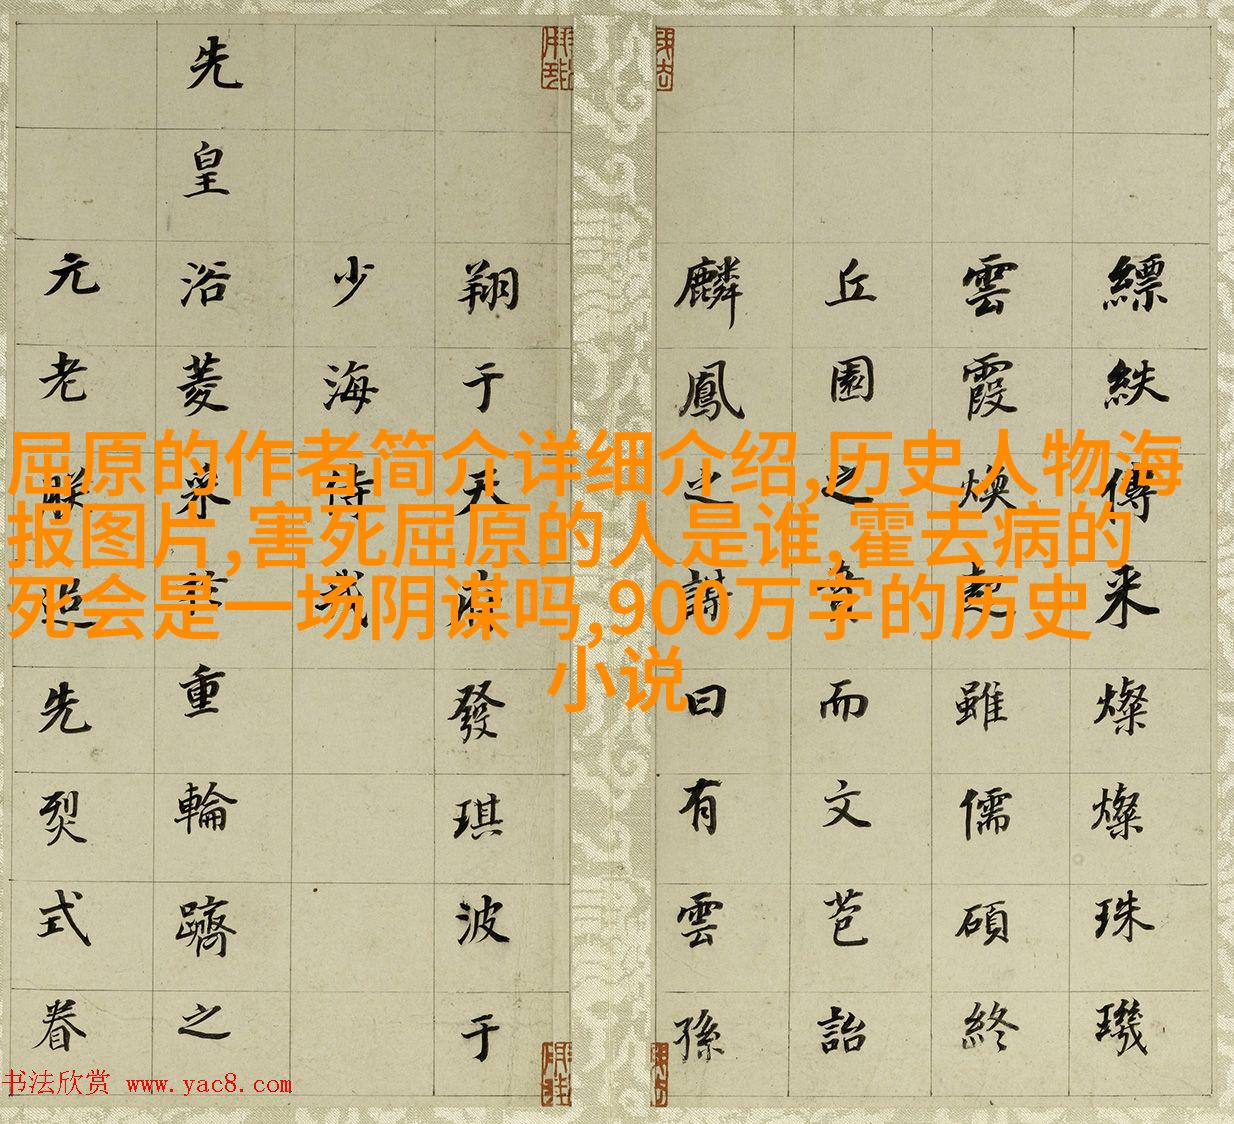 屈原的作者简介详细介绍,历史人物海
报图片,害死屈原的人是谁,霍去病的
死会是一场阴谋吗,900万字的历史
小说
縹紩傳采燦燦珠璣
雲霞煥雖儒碩終
丘園之而文芭詒
麟鳳之詩曰有雲孫
翔于天漢發琪波于
少海
先皇浴菱采重輪躋之
元老追先烈式眷
书法欣赏 www.yac8.com